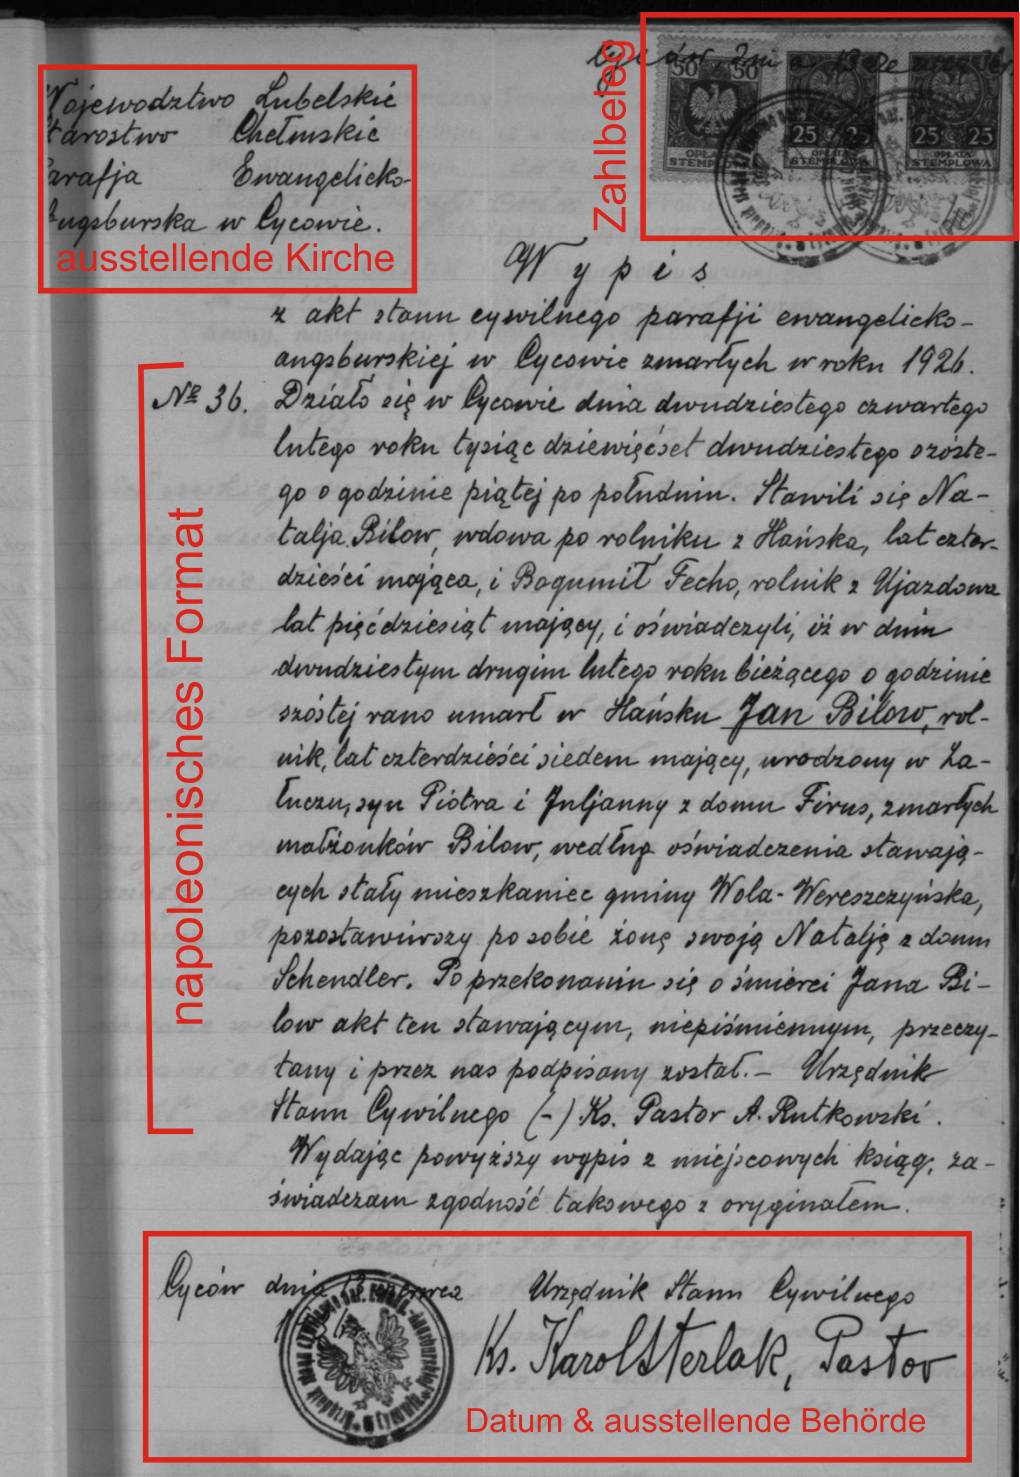 Województwo Lubelskie
Starostwo Chełmskie
Parafja Ewangelicko-
Augsburska w Cycowie.
ausstellende Kirche
Zahlbeleg
Cyców, dnia 13
50 50
OPŁATA
STEMPLOWA
25 25
OPŁATA
STEMPLOWA
25 25
OPŁATA
STEMPLOWA
Wypis
z akt stanu cywilnego parafji ewangelicko-
augsburskiej w Cycowie zmarłych w roku 1926.
napoleonisches Format
№ 36. Działo się w Cycowie dnia dwudziestego czwartego
lutego roku tysiąc dziewięćset dwudziestego szóste-
go o godzinie piątej po południu. Stawili się Na-
talja Bilow, wdowa po rolniku z Hańska, lat czter-
dzieści mająca, i Bogumił Fecho, rolnik z Ujazdowa
lat pięćdziesiąt mający, i oświadczyli, iż w dniu
dwudziestym drugim lutego roku bieżącego o godzinie
szóstej rano umarł w Hańsku Jan Bilow, rol-
nik, lat czterdzieści siedem mający, urodzony w Za-
łuczu, syn Piotra i Juljanny z domu Firus, zmarłych
małżonków Bilow, według oświadczenia stawają-
cych stały mieszkaniec gminy Wola-Wereszczyńska,
pozostawiwszy po sobie żonę swoją Natalję z domu
Schendler. Po przekonaniu się o śmierci Jana Bi-
low akt ten stawającym, niepiśmiennym, przeczy-
tany i przez nas podpisany został.- Urzędnik
Stanu Cywilnego (-) Ks. Pastor A. Rutkowski.
Wydając powyższy wypis z miejscowych ksiąg, za-
świadczam zgodność takowego z oryginałem.
Cyców dnia 13 czerwca Urzędnik Stanu Cywilnego
Ks. Karol Sterlak, Pastor
Datum & ausstellende Behörde